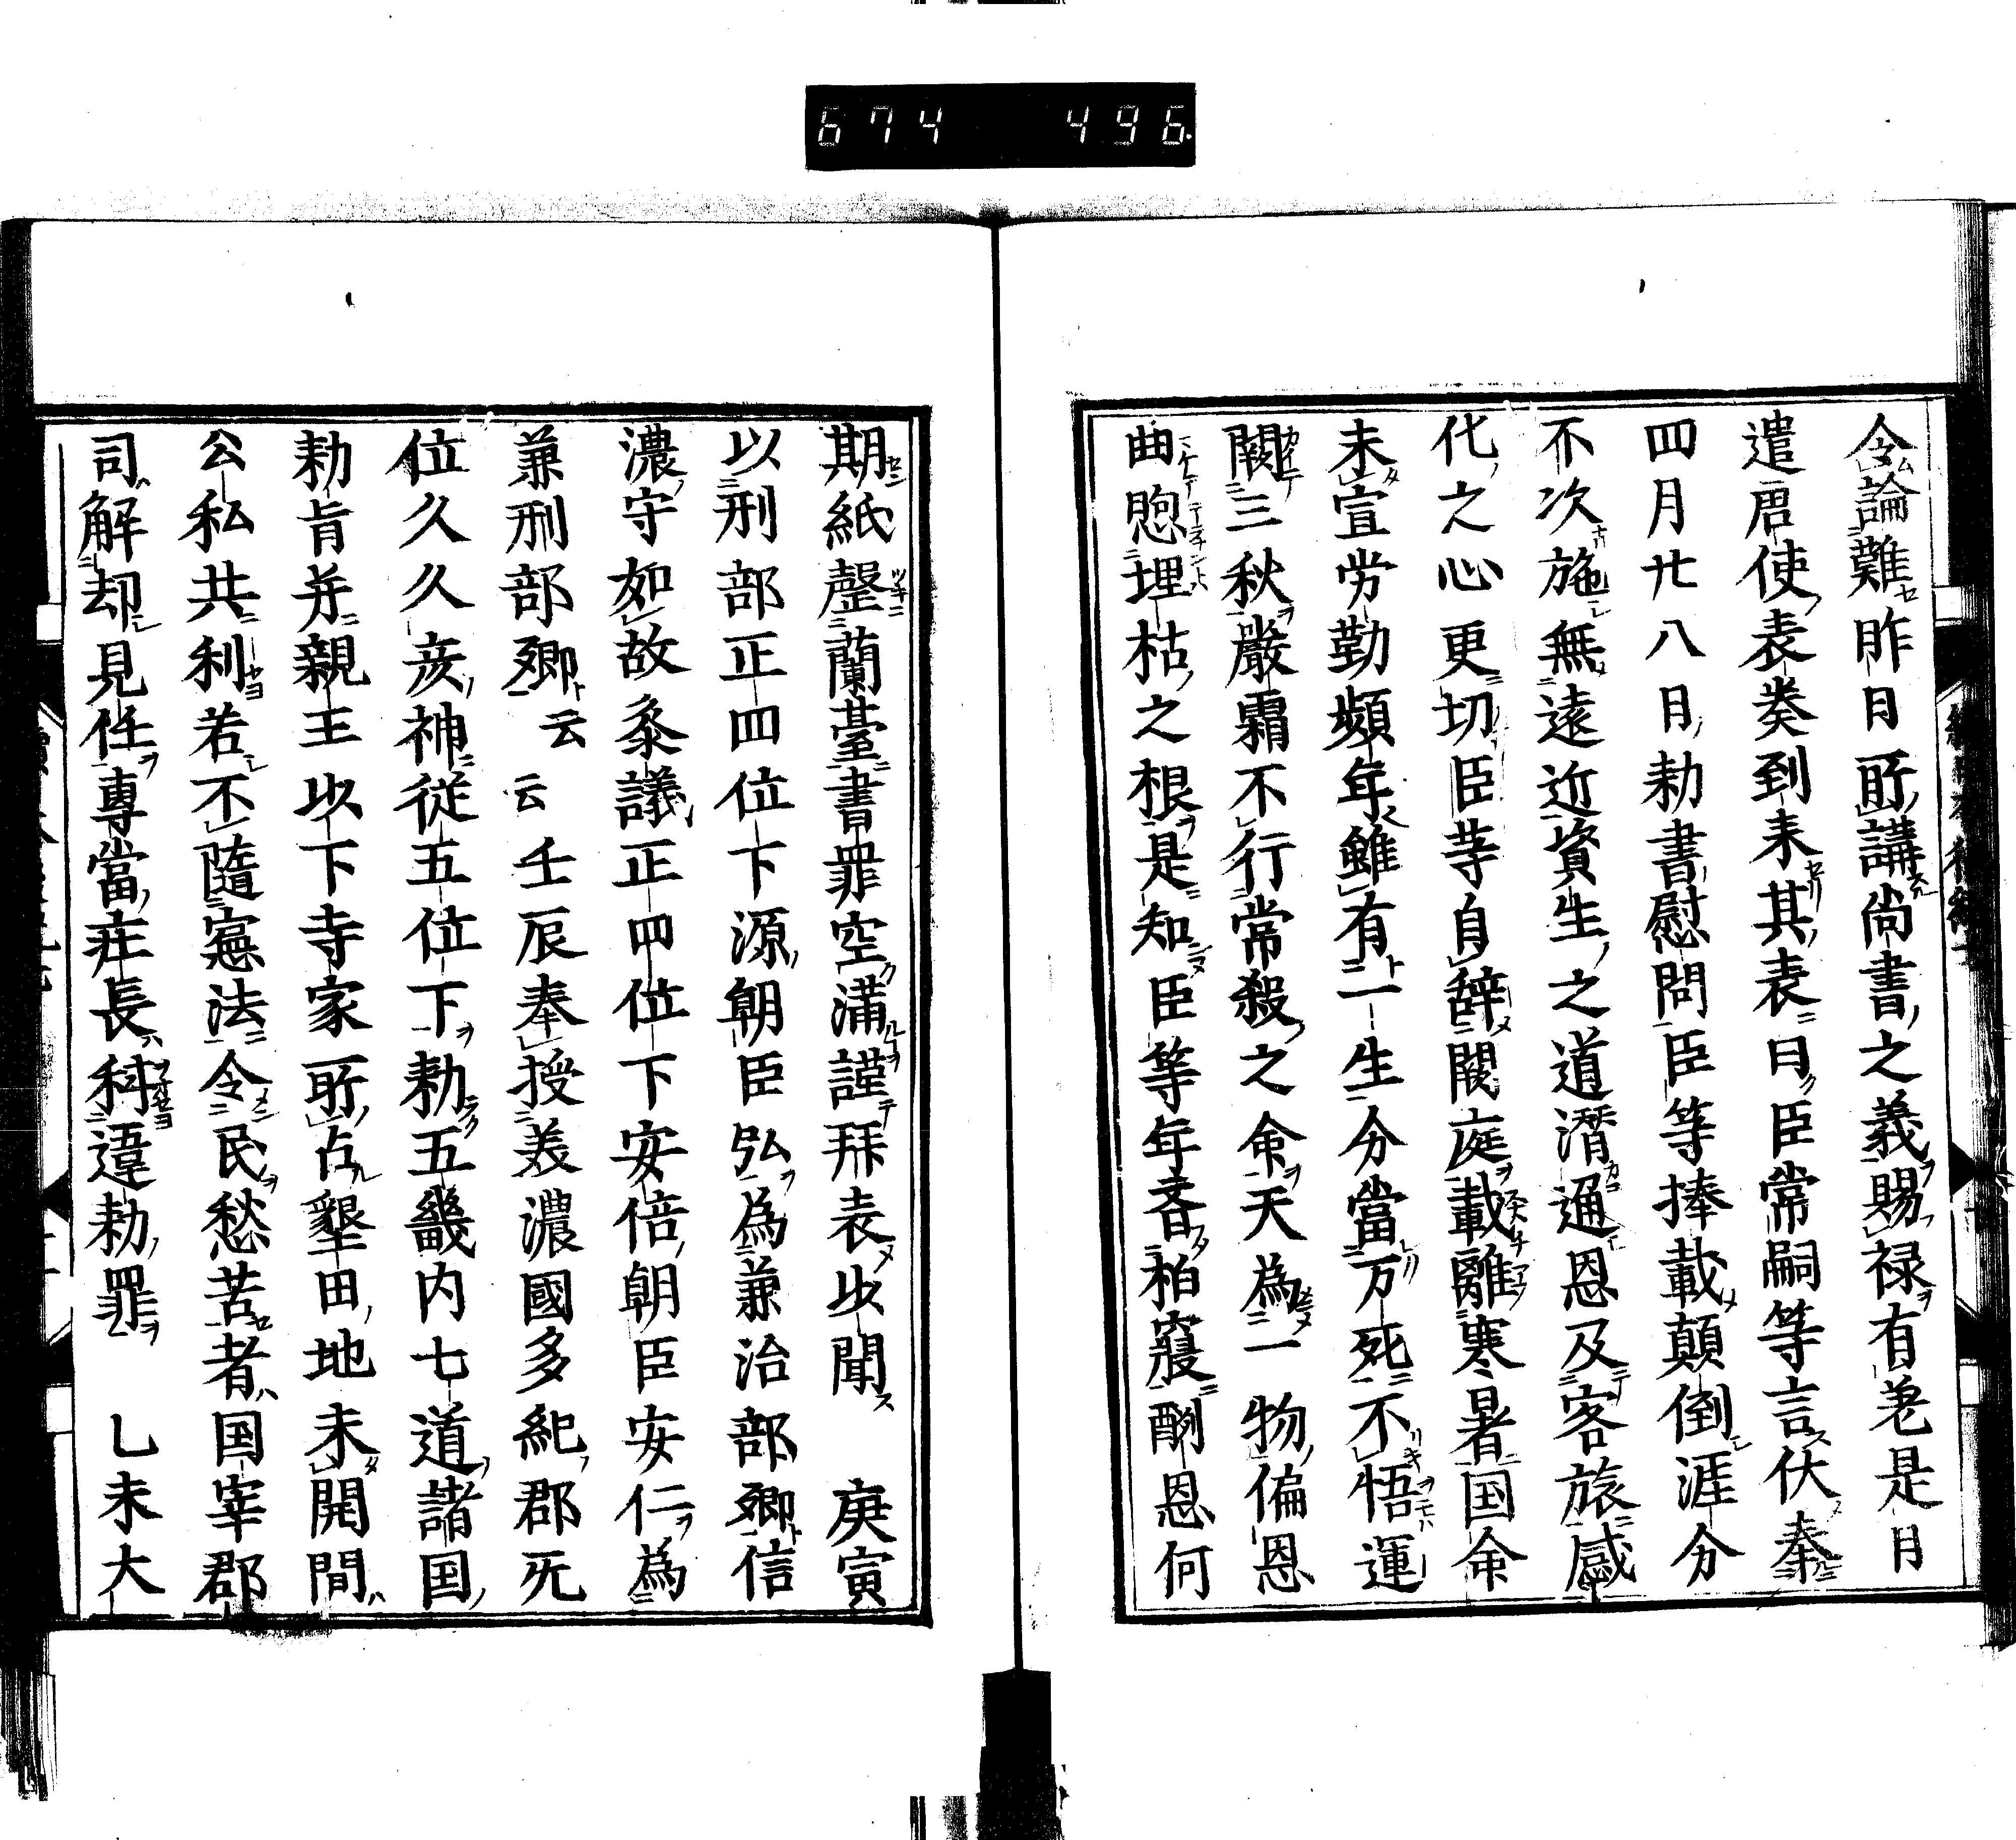 674 496
令論難昨日所講尚書之義賜禄有差是日
遣唐使表奏到来其表曰臣常嗣等言伏奉
四月廿八日勅書慰問臣等捧載顛倒涯分
不次施無遠近資生之道潛通恩及客旅感
化之心更切臣等自辞闕庭載離寒暑国命
未宣労勤頻年雖有一生分當万死不悟運
闕三秋嚴霜不行常殺之命天為一物偏恩
曲愍埋枯之根是知臣等年吝柏寢酬恩何
期紙罄蘭臺書罪空満謹拜表以聞 庚寅
以刑部正四位下源朝臣弘為兼治部卿信
濃守如故叅議正四位下安倍朝臣安仁為
兼刑部卿云云壬辰奉授美濃國多紀郡旡
位久久彦神従五位下勅五畿内七道諸国
勅旨并親王以下寺家所占墾田地未開間
公私共利若不随憲法令民愁苦者国宰郡
司解却見任專當庄長科違勅罪 乚未大